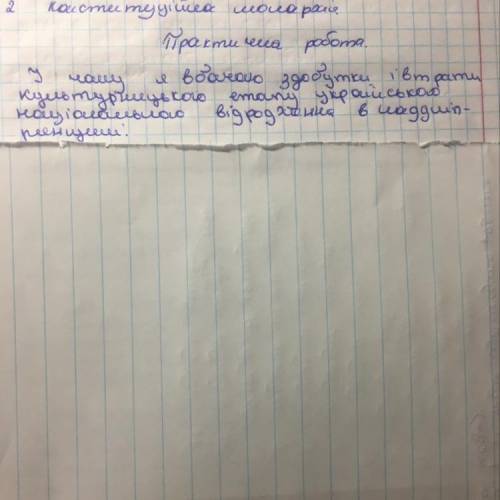 2 конституційна монархія
Практична робота.
У чому я вбачаю здобутки і втрати
культурницького етапу українського
національного відродження в наддніп-
рянщині.